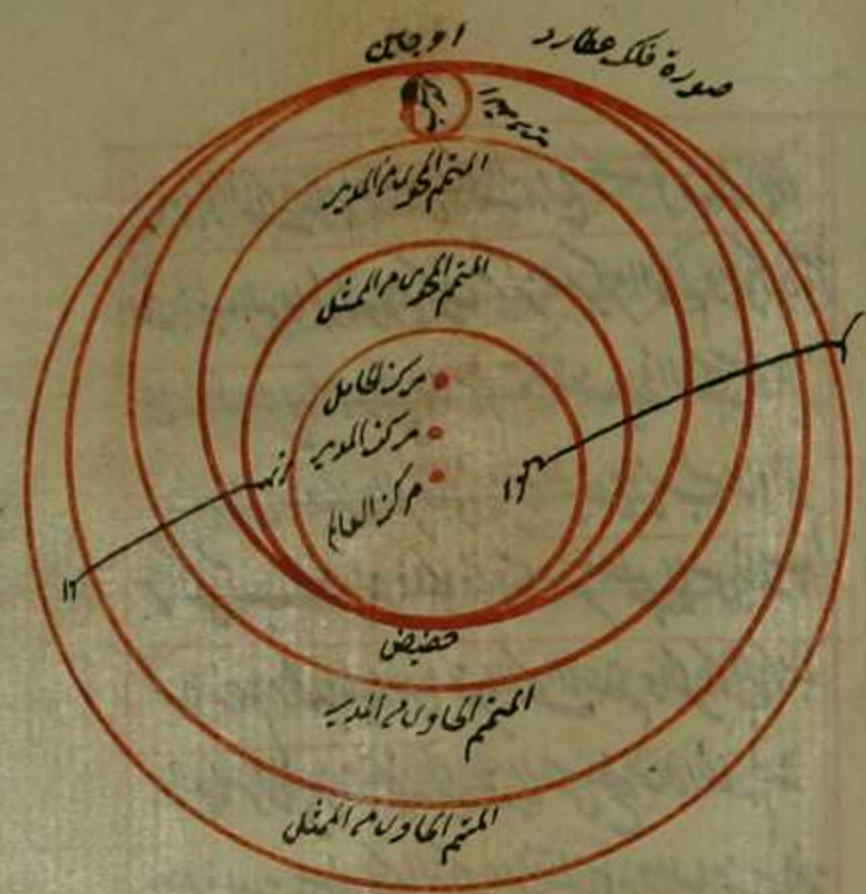 صورة فلك عطارد
اوجين
المتمم المحوى من المدير
المتمم المحوى من الممثل
مركز الحامل
مركز المدير
مركز العالم
حضيض
المتمم الحاوى من المدير
المتمم الحاوى من الممثل